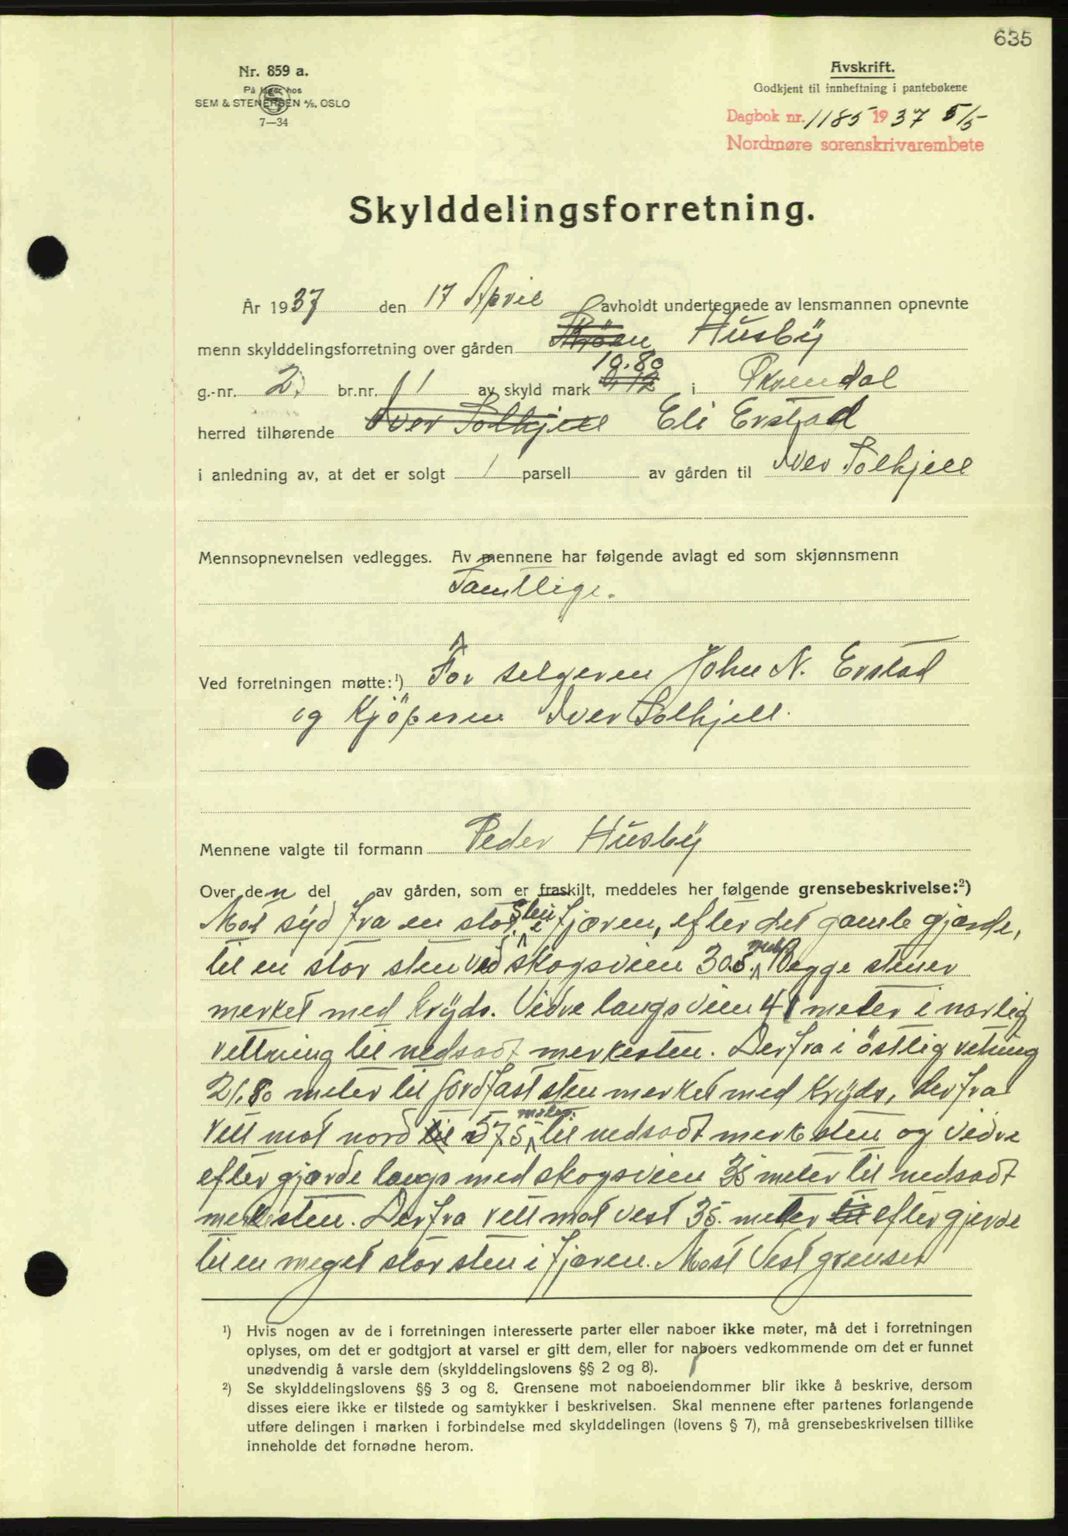 635
Nr. 859 a.
På lager hos
SEM & STENERSEN A/S. OSLO
7—34
Avskrift.
Godkjent til innheftning i pantebøkene
Dagbok nr. 1185 1937 5/5
Nordmøre sorenskrivarembete
Skylddelingsforretning.
År 1937 den 17 April avholdt undertegnede av lensmannen opnevnte
menn skylddelingsforretning over gården Husbÿ
10.80
g.-nr. 2. br.nr. 11 av skyld mark i
herred tilhørende Iver Solkjell Eli Erstad
i anledning av, at det er solgt 1 parsell av gården til Iver Solkjell
Mennsopnevnelsen vedlegges. Av mennene har følgende avlagt ed som skjønnsmenn
Samtlige.
Ved forretningen møtte:¹) For selgeren John N. Erstad
og Kjöperen Iver Solkjell.
Mennene valgte til formann Peder Husbÿ
Over den del av gården, som er fraskilt, meddeles her følgende grensebeskrivelse:²)
Mot syd fra en stor sten i fjæren, efter det gamle gjærde,
til en stor sten ved skogsveien 30.5. meter Begge stener
merket med Krÿds. Vidre langs veien 41 meter i norlig
rettning til nedsadt merkesten. Derfra i östlig retning
21.80 meter til jordfast sten merket med Krÿds, derfra
rett mot nord til 57,5 meter til nedsadt merkesten og vidre
efter gjærde langs med skogsveien 35 meter til nedsadt
merkesten. Derfra rett mot vest 35. meter til efter gjerde
til en meget stor sten i fjæren. Mot Vest grenser
¹) Hvis nogen av de i forretningen interesserte parter eller naboer ikke møter, må det i forretningen
oplyses, om det er godtgjort at varsel er gitt dem, eller for naboers vedkommende om det er funnet
unødvendig å varsle dem (skylddelingslovens §§ 2 og 8).
²) Se skylddelingslovens §§ 3 og 8. Grensene mot naboeiendommer blir ikke å beskrive, dersom
disses eiere ikke er tilstede og samtykker i beskrivelsen. Skal mennene efter partenes forlangende
utføre delingen i marken i forbindelse med skylddelingen (lovens § 7), må grensebeskrivelsen tillike
inneholde det fornødne herom.